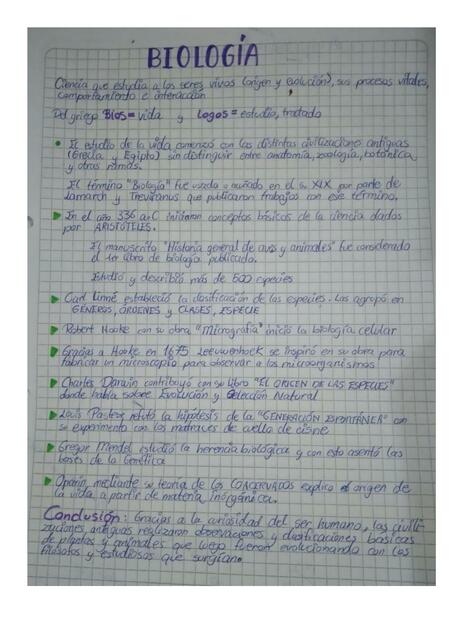 BIOLOGÍA
Ciencia que estudia a los seres vivos (origen y Evolución), sus procesos vitales,
comportamiento e interacción
Del griego Bios = vida y Logos = estudio, tratado
El estudio de la vida comenzó con las distintas civilizaciones antiguas
(Grecia y Egipto) sin distinguir entre anatomía, zoología, botánica
y otras ramas.
El término "Biología" fue usado o acuñado, en el S. XIX por parte de
Lamarck y Treviranus que publicaron trabajos con ese término.
En el año 336 a.C iniciaron conceptos básicos de la ciencia dados
por ARISTÓTELES.
El manuscrito "Historia general de aves y animales" fue considerado
el 1er libro de biología publicado.
Estudió y describió más de 500 especies
Carl Linné estableció la clasificación de las especies. Las agrupó en
GÉNEROS, ÓRDENES y CLASES, ESPECIE
Robert Hooke con su obra "Micrografía" inició la biología celular
Gracias a Hooke en 1675 Leeuwenhoek se inspiró en su obra para
fabricar un microscopio para observar a los microorganismos
Charles Darwin contribuyó con su libro "EL ORIGEN DE LAS ESPECIES"
donde habla sobre Evolución y Selección Natural
Louis Pasteur refutó la hipótesis de la "GENERACIÓN ESPONTÁNEA" con
su experimento con los matraces de cuello de cisne
Gregor Mendel estudió la herencia biológica y con esto asentó las
bases de la Genética
Oparin, mediante su teoría de los COACERVADOS explicó el origen de
la vida a partir de materia inorgánica.
Conclusión: Gracias a la curiosidad del ser humano, las civili-
zaciones antiguas realizaron observaciones y clasificaciones básicas
de plantas y animales que luego fueron evolucionando con los
filósofos y estudiosos que surgían.